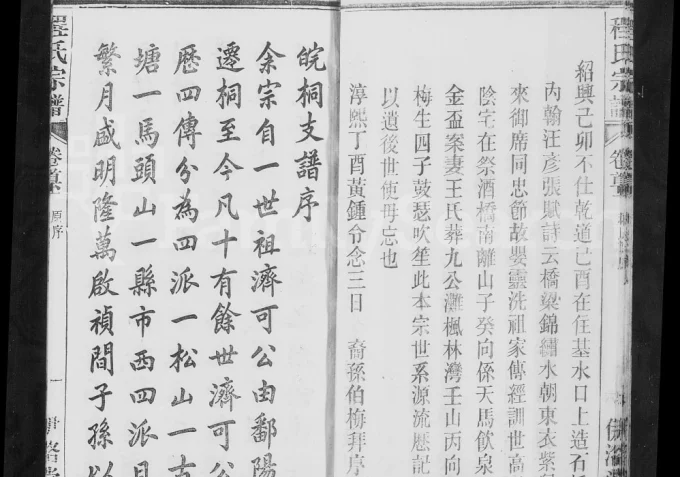 程氏宗譜
卷首
紹興己卯不仕乾道己酉在任基水口上造石
內翰汪彥張賦詩云橋梁錦繡水朝東衣紫
來御席同忠節故嬰靈洗祖家傳經訓世高
陰宅在祭酒橋南離山子癸向係天馬飲泉
金盃案妻王氏葬九公灘楓林灣壬山丙向
梅生四子鼓瑟吹笙此本宗世系源流歷記
以遺後世使毋忘也
淳熙丁酉黃鍾令念三日 裔孫伯梅拜序
皖桐支譜序
余宗自一世祖濟可公由鄱陽
遷桐至今凡十有餘世濟可公
歷四傳分為四派一松山一古
塘一馬頭山一縣市西四派
繁月盛明隆萬啟禎間子孫以
程氏宗譜
卷首
原序
一